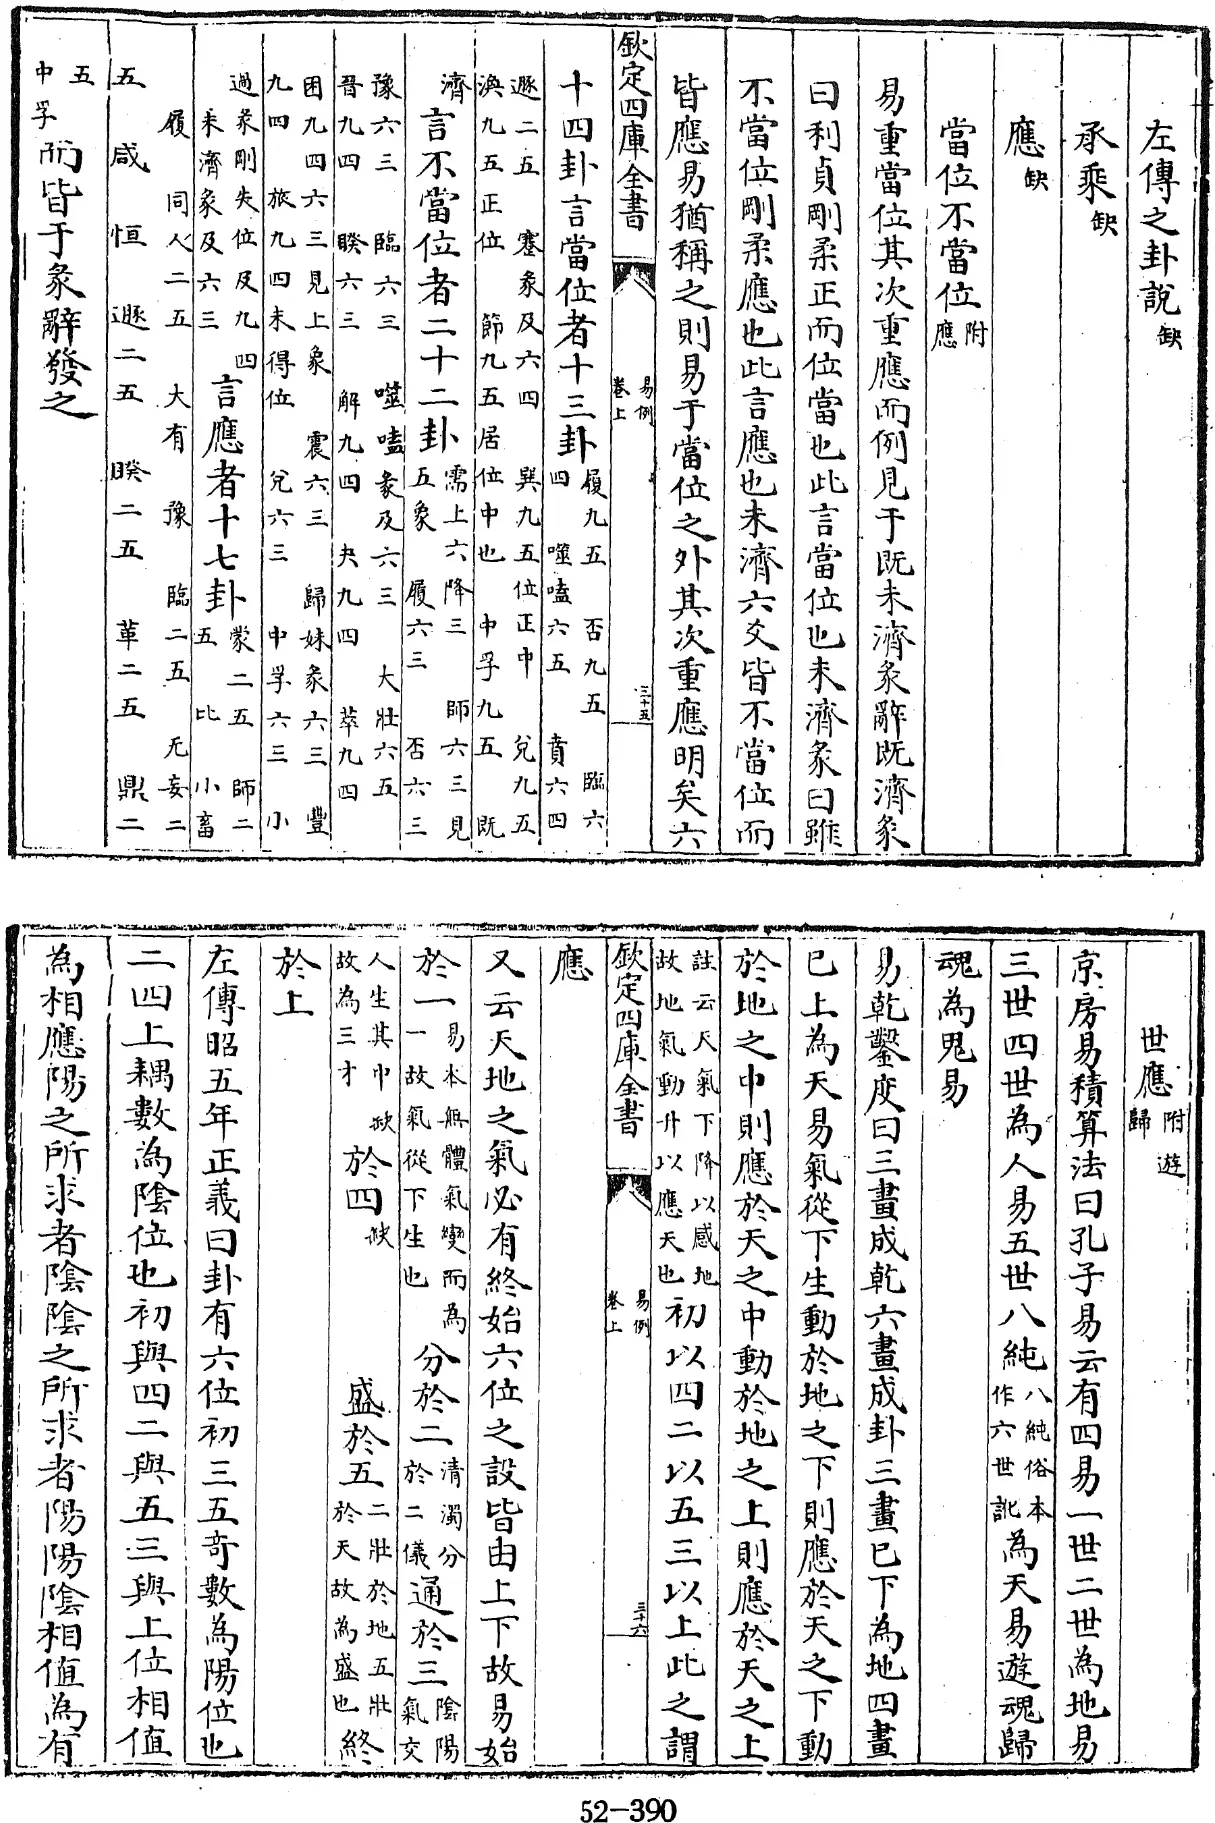 左傳之卦說缺
承乘缺
應缺
當位不當位附應
易重當位其次重應而例見于既未濟彖辭既濟彖
曰利貞剛柔正而位當也此言當位也未濟彖曰雖
不當位剛柔應也此言應也未濟六爻皆不當位而
皆應易猶稱之則易于當位之外其次重應明矣六
欽定四庫全書
易例
卷上
三十五
十四卦言當位者十三卦履九五 否九五 臨六
四 噬嗑六五 賁六四
遯二五 蹇彖及六四 巽九五位正中 兌九五
渙九五正位 節九五居位中也 中孚九五 既
濟言不當位者二十二卦需上六降三 師六三見
五彖 履六三 否六三
豫六三 臨六三 噬嗑彖及六三 大壯六五
晉九四 睽六三 解九四 夬九四 萃九四
困九四六三見上彖 震六三 歸妹彖六三 豐
九四 旅九四未得位 兌六三 中孚六三 小
過彖剛失位及九四
未濟彖及六三言應者十七卦蒙二五 師二
五 比 小畜
履 同人二五 大有 豫 臨二五 无妄二
五 咸 恒 遯二五 睽二五 革二五 鼎二
五
中孚而皆于彖辭發之
世應附遊歸
京房易積算法曰孔子易云有四易一世二世為地易
三世四世為人易五世八純八純俗本作六世訛為天易遊魂歸
魂為鬼易
易乾鑿度曰三畫成乾六畫成卦三畫巳下為地四畫
巳上為天易氣從下生動於地之下則應於天之下動
於地之中則應於天之中動於地之上則應於天之上
註云天氣下降以感地
故地氣動升以應天也初以四二以五三以上此之謂
欽定四庫全書
易例
卷上
三十六
應
又云天地之氣必有終始六位之設皆由上下故易始
於一易本無體氣變而為一故氣從下生也分於二清濁分於二儀通於三陰陽氣交
人生其中故為三才缺於四缺盛於五二壯於地五壯於天故為盛也終
於上
左傳昭五年正義曰卦有六位初三五奇數為陽位也
二四上耦數為陰位也初與四二與五三與上位相值
為相應陽之所求者陰陰之所求者陽陽陰相值為有
52-390